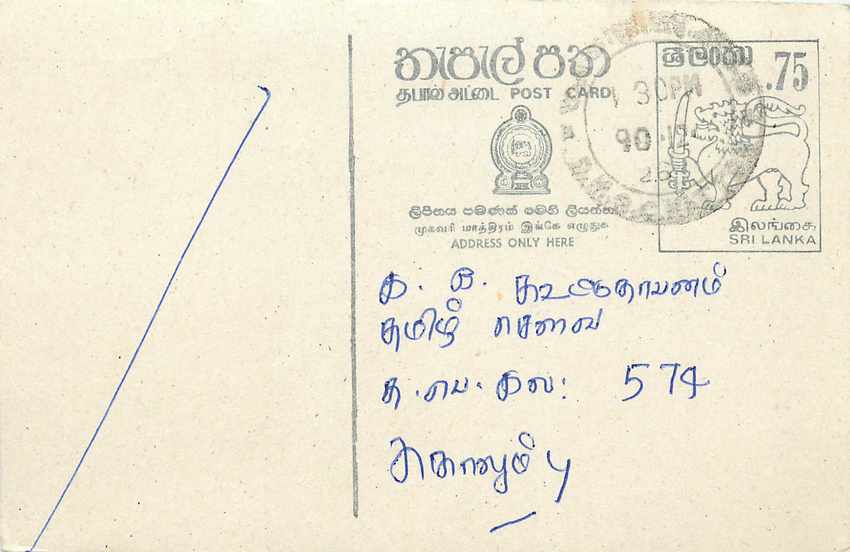 තැපැල් පත
தபால் அட்டை POST CARD
ලිපිනය පමණක් මෙහි ලියන්න
முகவரி மாத்திரம் இங்கே எழுதுக
ADDRESS ONLY HERE
ශ්‍රී ලංකා
.75
இலங்கை
SRI LANKA
30PM
90
தமிழ் சேவை
த. பெ. இல: 574
கொழும்பு